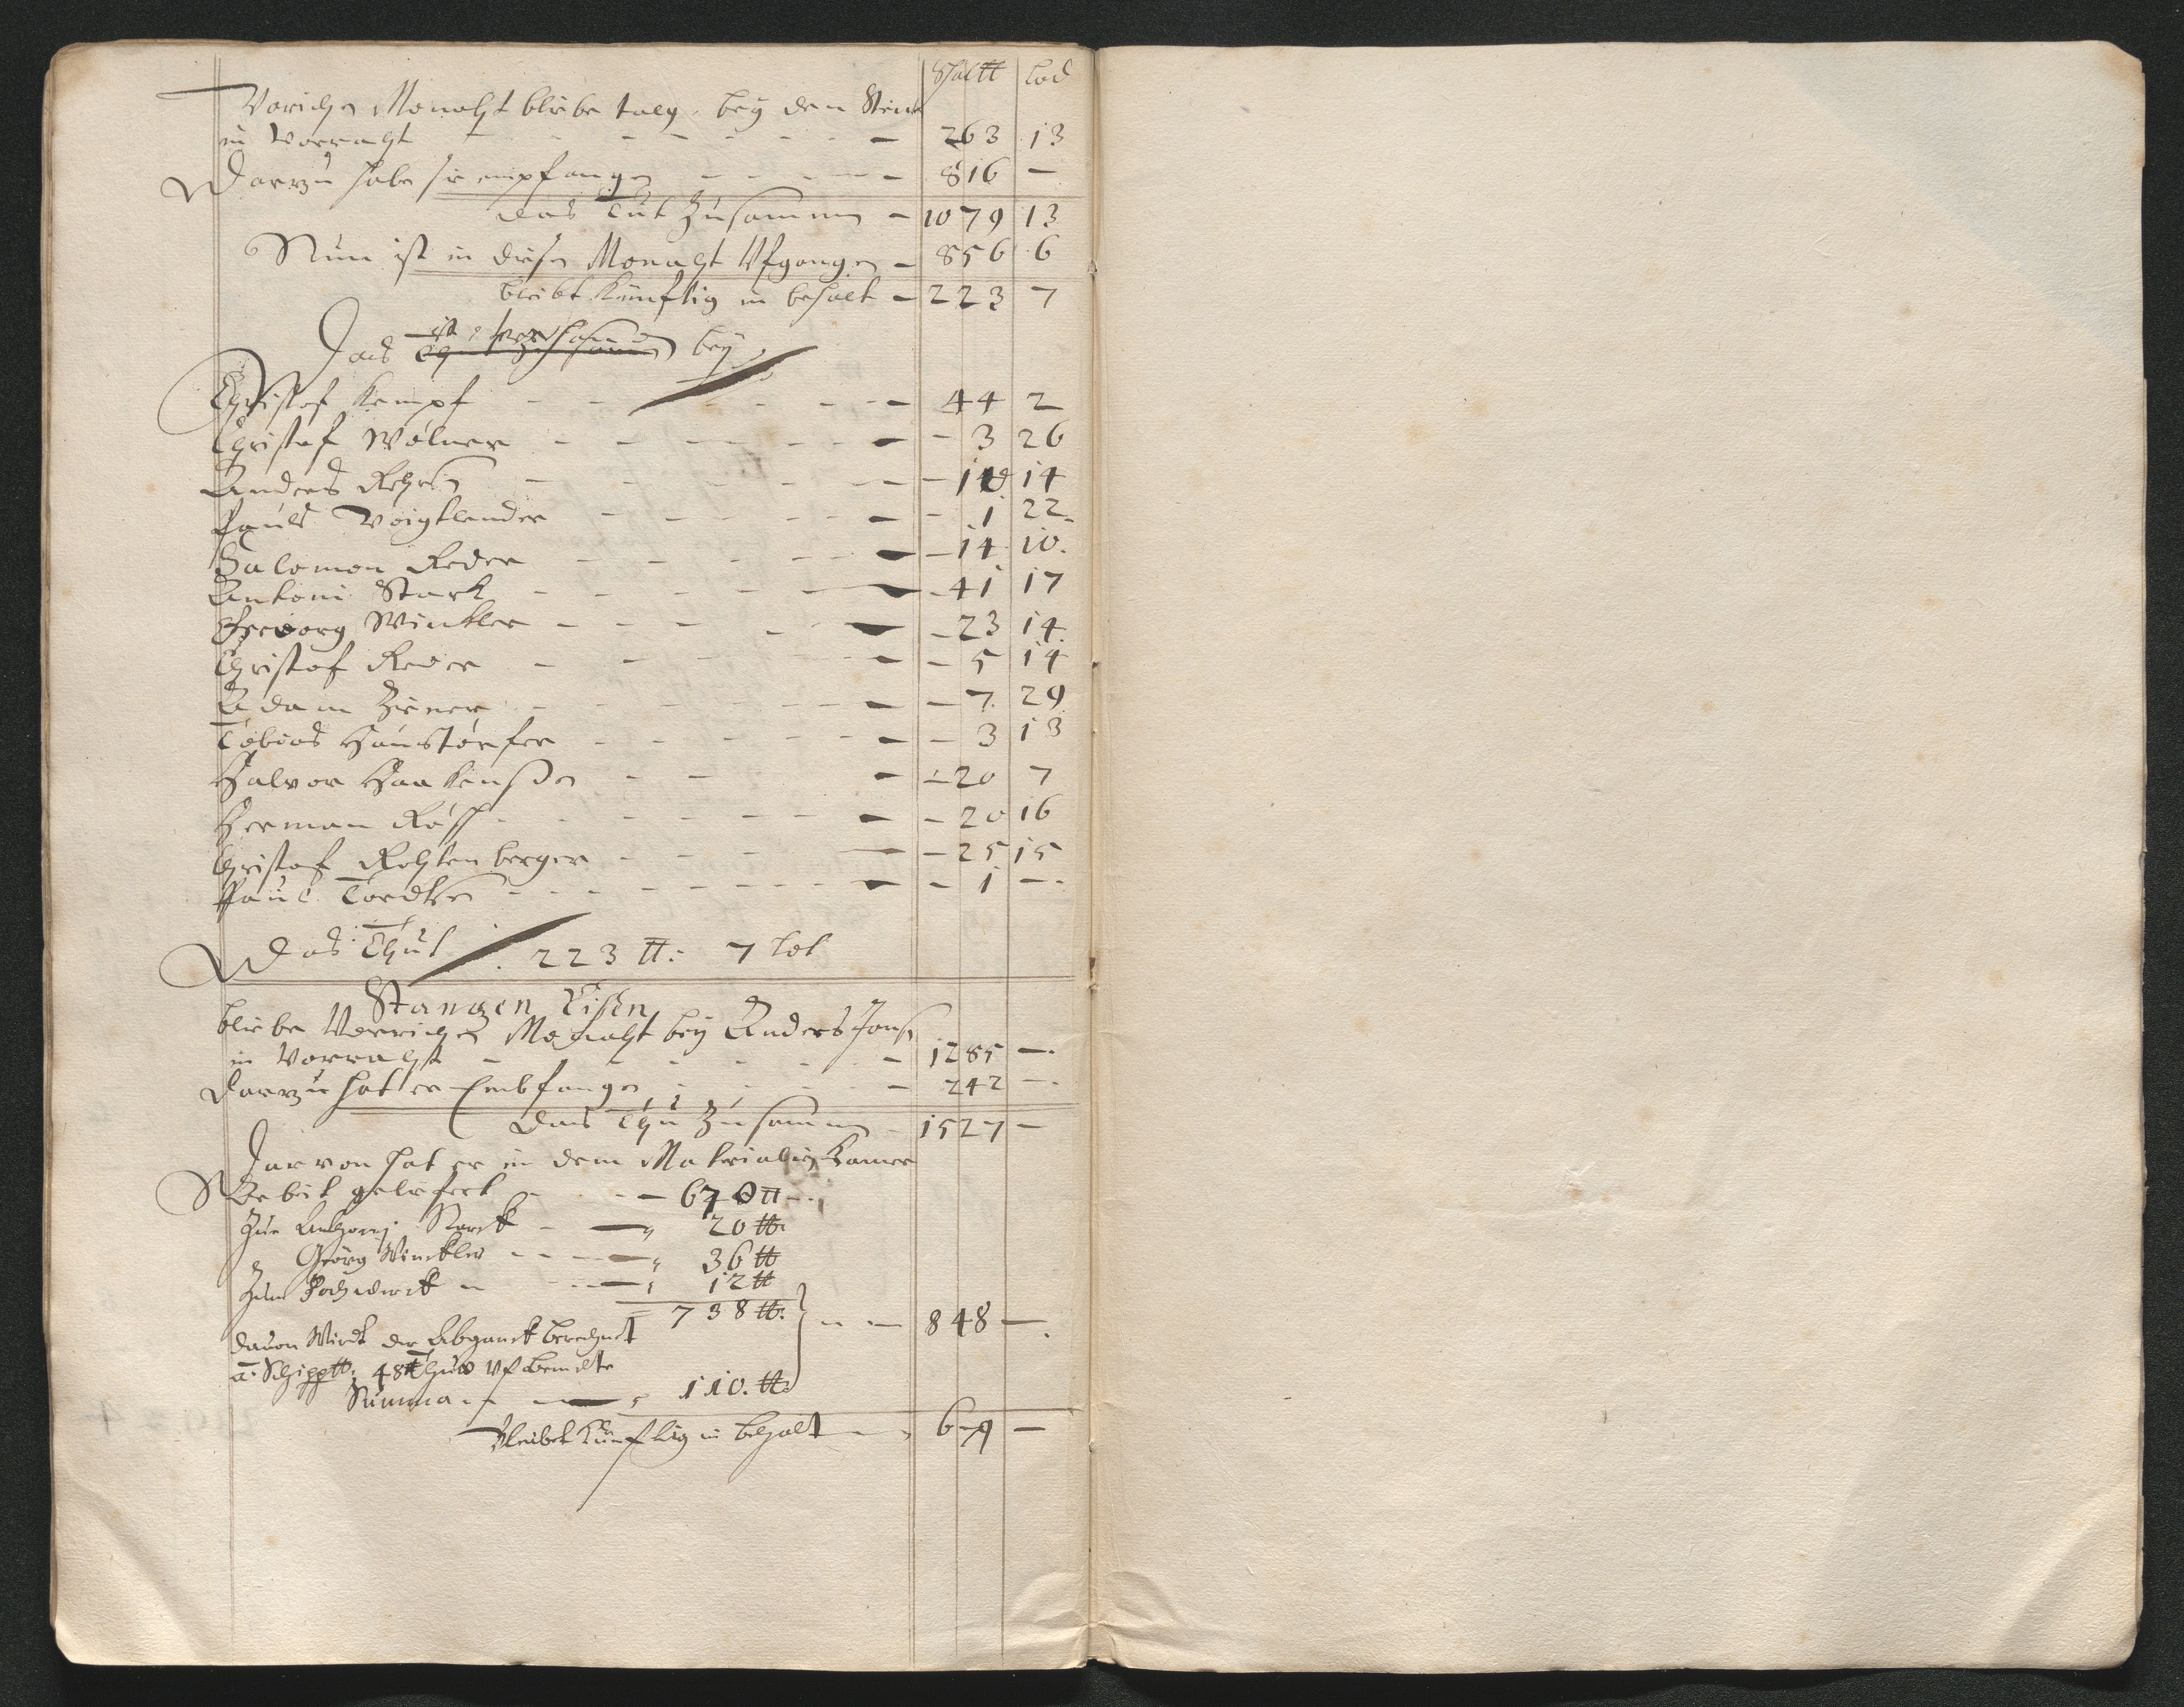 Schal ℔ Lod
Vorichen Monaht bliebe talg bey den
in Vorraht 263 13
Darzu habe sie empfangen 816 —
das Tut Zusammen 1079 13
Nun ist in diesen Monaht Ufgangen 856 6
bleibt Künftig in behalt 223 7
Das ist bey
Christof Kempf 44 2
Christof Wölner 3 26
Anders 14
Pauls Voigtlender 1 22
Salomon Reder 14 10
Antoni Stark 41 17
Georg Winkler 23 14
Christof Reder 5 14
Adam Ziener 7 29
Tobias Haustörfer 3 13
Halvor Haakensen 20 7
Herman Röss 20 16
Christof Rohtenberger 25 15
Paul Tordtsen 1 —
Das Thut 223 ℔: 7 lot
Stangen Eisen
bliebe Vorrichen Monaht bey Anders Jons
in Vorraht 1285 —
Darzu hat er Embfangen 242 —
Das Thu Zusammen 1527 —
Darvon hat er in dem Materialien Hamer
Arbeit geliefert 670 ℔
Zue Anthonj Starck 20 ℔
" Georg Winckler 36 ℔
Zum Pochwerck 12 ℔
738 ℔: 848 —
Davon Wirdt der Abganck berechnet
a: Schipp℔: 48 ℔ Thutt Uf
Summa 110. ℔:
Bleibet Künftig in behalt 679 —